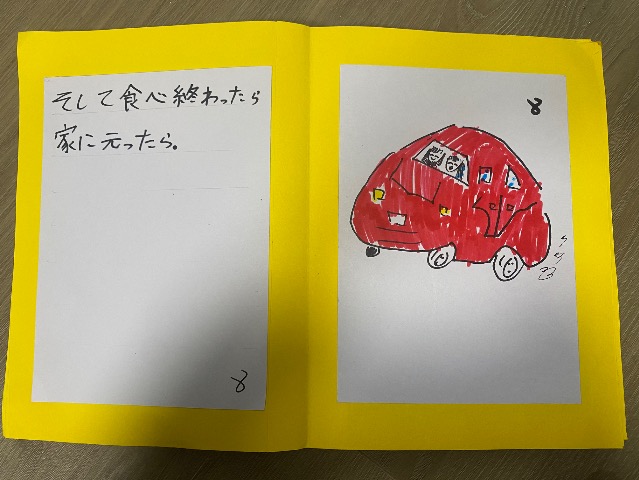 そして食べ終わったら
家に元ったら。
8
8